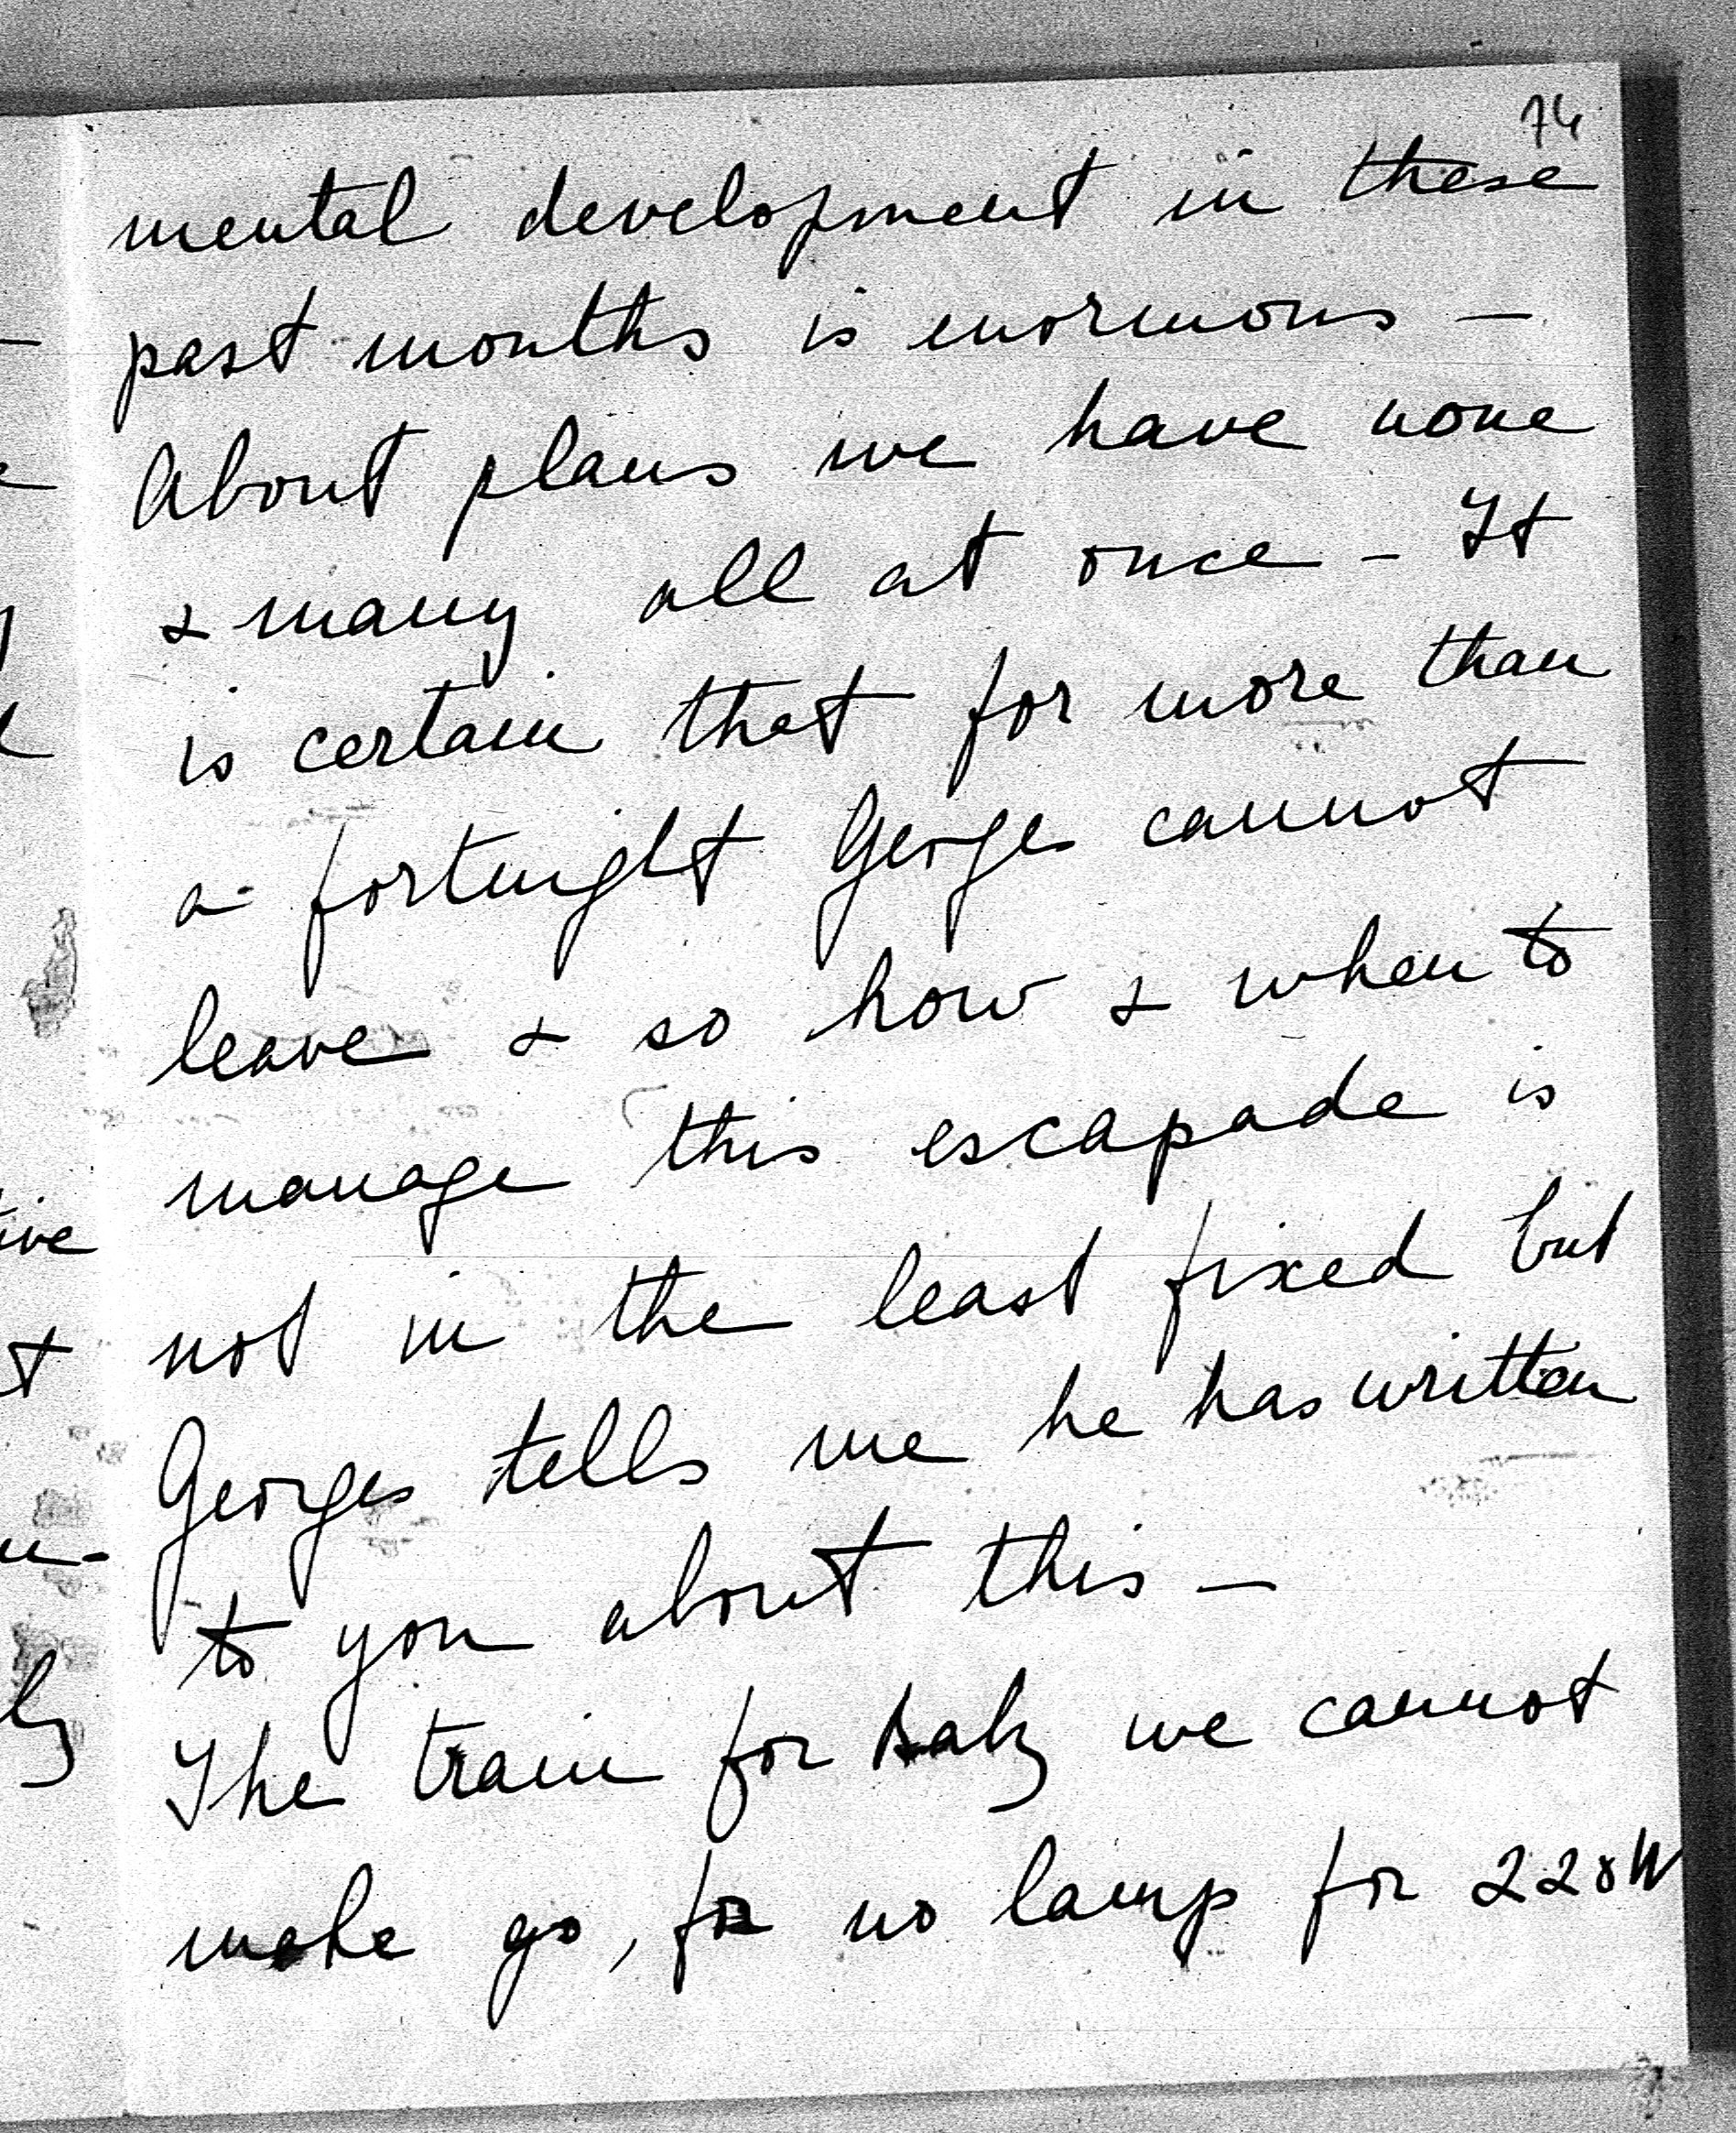 74
mental development in these
past months is enormous —
About plans we have none
& many all at once - It
is certain that for more than
a fortnight Georges cannot
leave & so how & when to
manage this escapade is
not in the least fixed but
Georges tells me he has written
to you about this —
The train for we cannot
make go, for no lamp for 220W